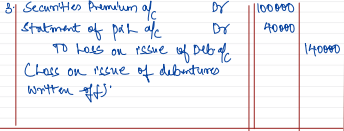 3. Securities Premium a/c Dr 100000
Statment of p&L a/c Dr 40000
To Loss on issue of Deb a/c 140000
(Loss on issue of debentures
written off).